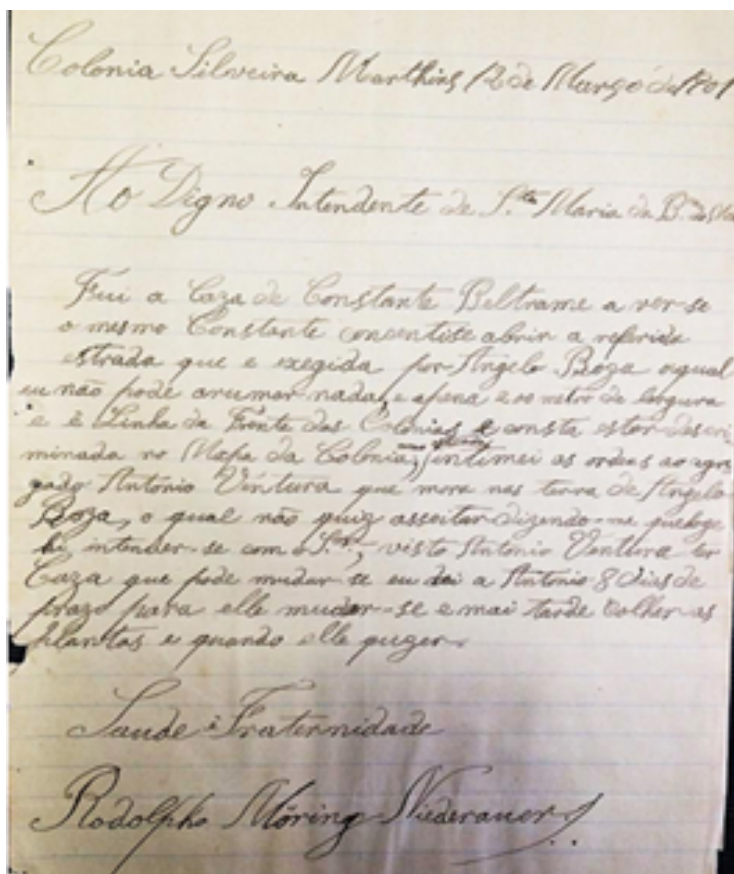 Colonia Silveira Marthins 12 de Março de 1901
Ao Digno Intendente de S.ta Maria da B. do
Fui a Caza de Constante Beltrame a ver-se
o mesmo Constante consentise abrir a referida
estrada que e exegida por Angelo Boza oqual
eu não pode arumar nada, e apena 2 os metro de largura
e é Linha da Frente das Colonias e consta estar descri
minada no Mapa da Colonia, intimei as ordens ao agre
gado Antonio Ventura que mora nas terra de Angelo
Boza, o qual não quiz asseitar dizendo-me que hoge
hi intender-se com o S.r, visto Antonio Ventura ter
Caza que pode mudar-se eu dei a Antonio 8 dias de
prazo para elle mudar-se e mai tarde Colher as
plantas e quando elle quzer.
Saude e Fraternidade
Rodolpho Möring Niederauer